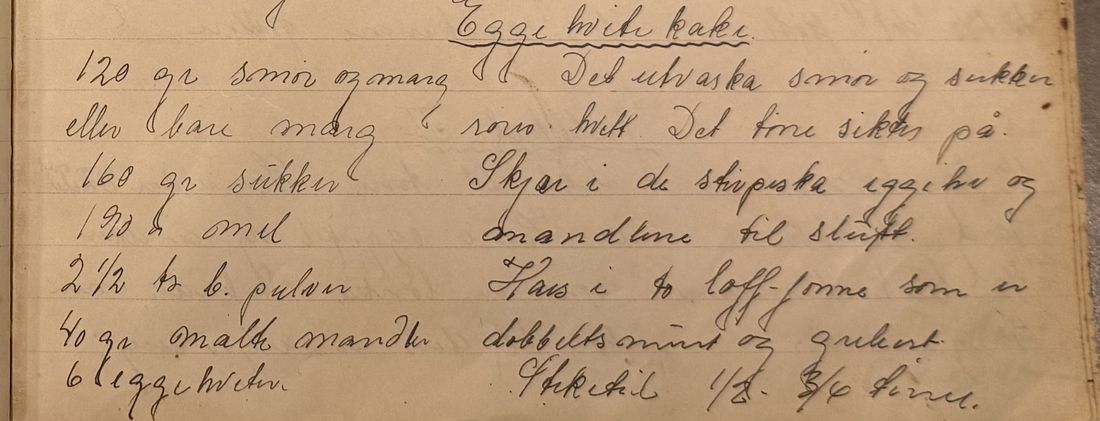 Eggehvitekake.
120 gr smør og marg
eller bare marg
160 gr sukker
190 " mel
2 1/2 ts b. pulver
40 gr malte mandler
6 eggehviter.
Det utvaska smør og sukker
røres hvitt. Det tørre siktes på.
Skjær i de stivpiska eggehv og
mandlene til slutt.
Haes i to loff-forme som er
dobbeltsmurt og
Steketid 1/2 - 3/4 time.